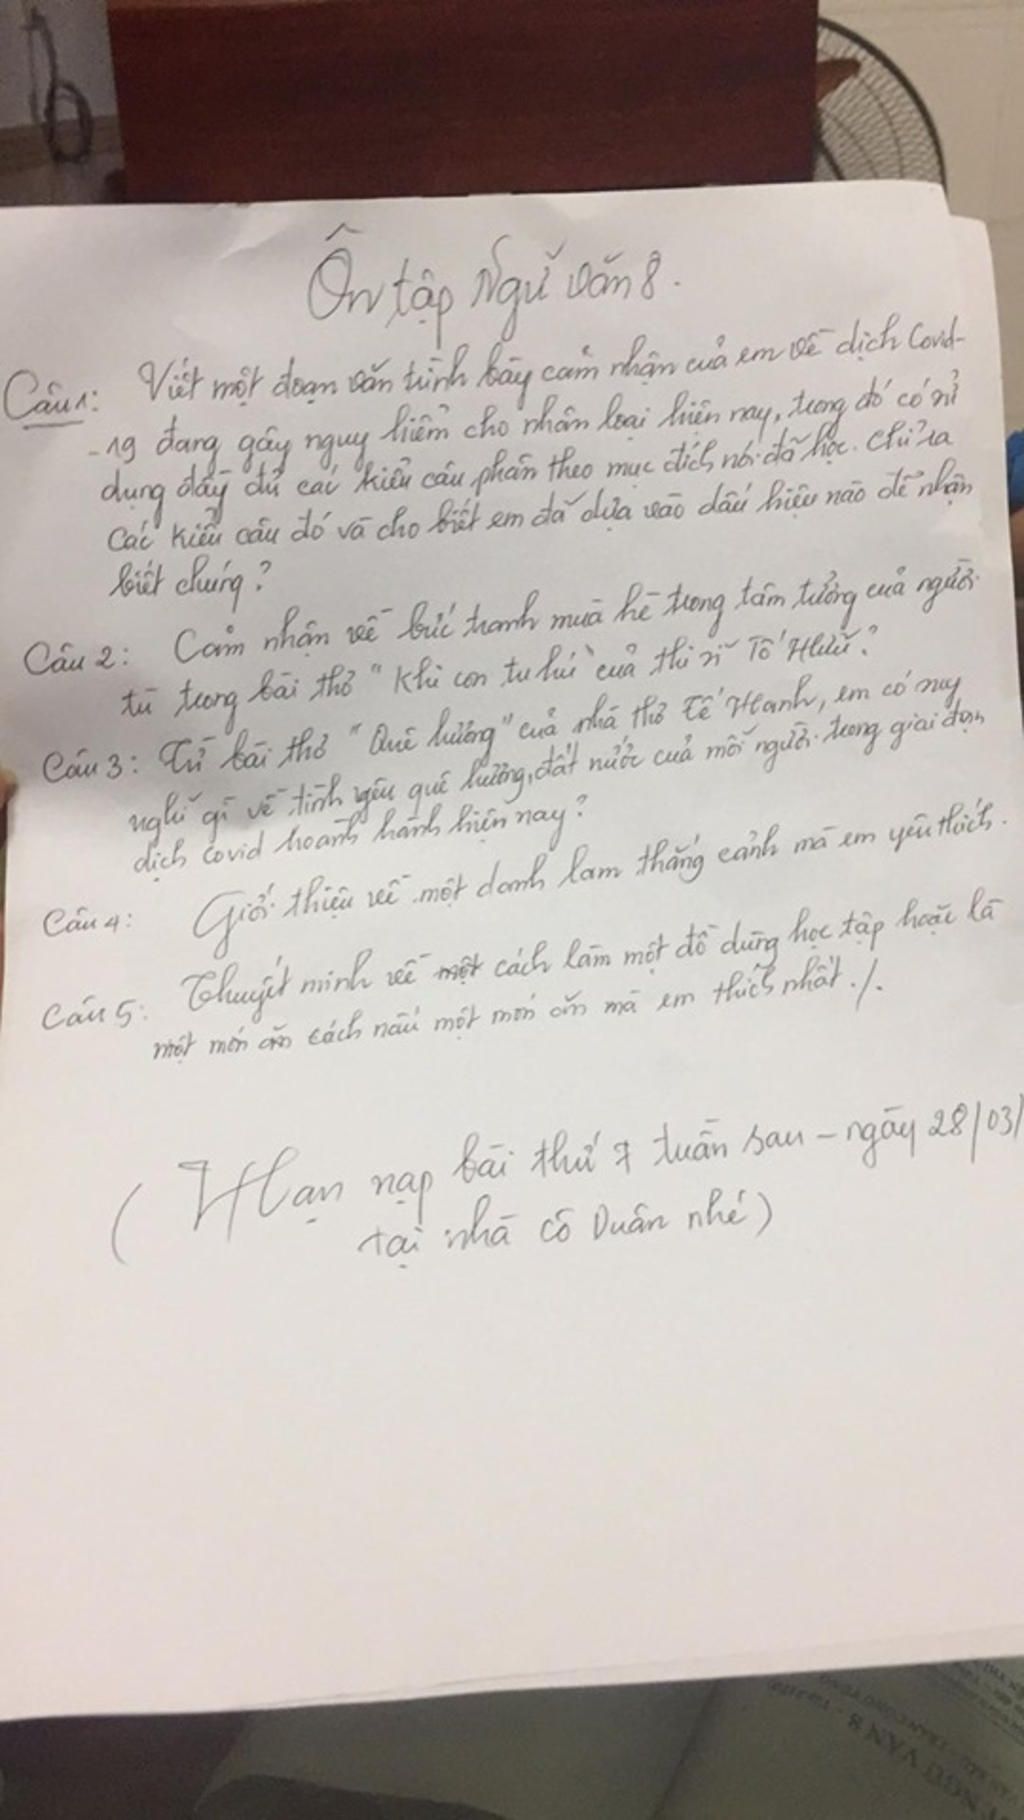 Ôn tập Ngữ văn 8.
Câu 1: Viết một đoạn văn trình bày cảm nhận của em về dịch Covid-
-19 đang gây nguy hiểm cho nhân loại hiện nay, trong đó có sử
dụng đầy đủ các kiểu câu phân theo mục đích nói đã học. Chỉ ra
các kiểu câu đó và cho biết em đã dựa vào dấu hiệu nào để nhận
biết chúng?
Câu 2: Cảm nhận về bức tranh mùa hè trong tâm tưởng của người
tù trong bài thơ "Khi con tu hú" của thi sĩ Tố Hữu?
Câu 3: Từ bài thơ "Quê hương" của nhà thơ Tế Hanh, em có suy
nghĩ gì về tình yêu quê hương, đất nước của mỗi người trong giai đoạn
dịch covid hoành hành hiện nay?
Câu 4: Giới thiệu về một danh lam thắng cảnh mà em yêu thích.
Câu 5: Thuyết minh về một cách làm một đồ dùng học tập hoặc là
một món ăn cách nấu một món ăn mà em thích nhất./.
(Hạn nạp bài thứ 7 tuần sau - ngày 28/03/
tại nhà cô Duân nhé)
NGỮ VĂN 8